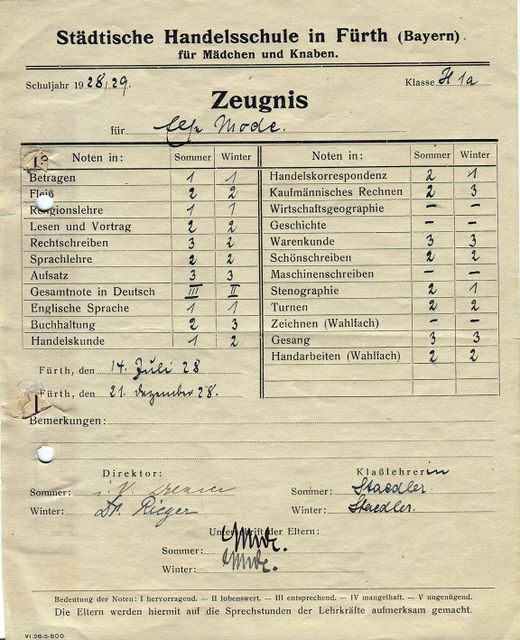 Städtische Handelsschule in Fürth (Bayern).
für Mädchen und Knaben.
Schuljahr 1928/29. Klasse H 1a
Zeugnis
für Mode.
Noten in: Sommer Winter
Betragen 1 1
Fleiß 2 2
Religionslehre 1 1
Lesen und Vortrag 2 2
Rechtschreiben 3 2
Sprachlehre 2 2
Aufsatz 3 3
Gesamtnote in Deutsch III II
Englische Sprache 1 1
Buchhaltung 2 3
Handelskunde 1 2
Noten in: Sommer Winter
Handelskorrespondenz 2 1
Kaufmännisches Rechnen 2 3
Wirtschaftsgeographie – –
Geschichte – –
Warenkunde 3 3
Schönschreiben 2 2
Maschinenschreiben – –
Stenographie 2 1
Turnen 2 2
Zeichnen (Wahlfach) – –
Gesang 3 3
Handarbeiten (Wahlfach) 2 2
Fürth, den 14. Juli 28
Fürth, den 21. Dezember 28.
Bemerkungen:
Direktor: Klaßlehrerin
Sommer: i. V. Sommer: Staedler
Winter: Dr. Rieger Winter: Staedler.
Unterschrift der Eltern:
Sommer: Mode.
Winter: Mode.
Bedeutung der Noten: I hervorragend. – II lobenswert. – III entsprechend. – IV mangelhaft. – V ungenügend.
Die Eltern werden hiermit auf die Sprechstunden der Lehrkräfte aufmerksam gemacht.
VI 26-5-500